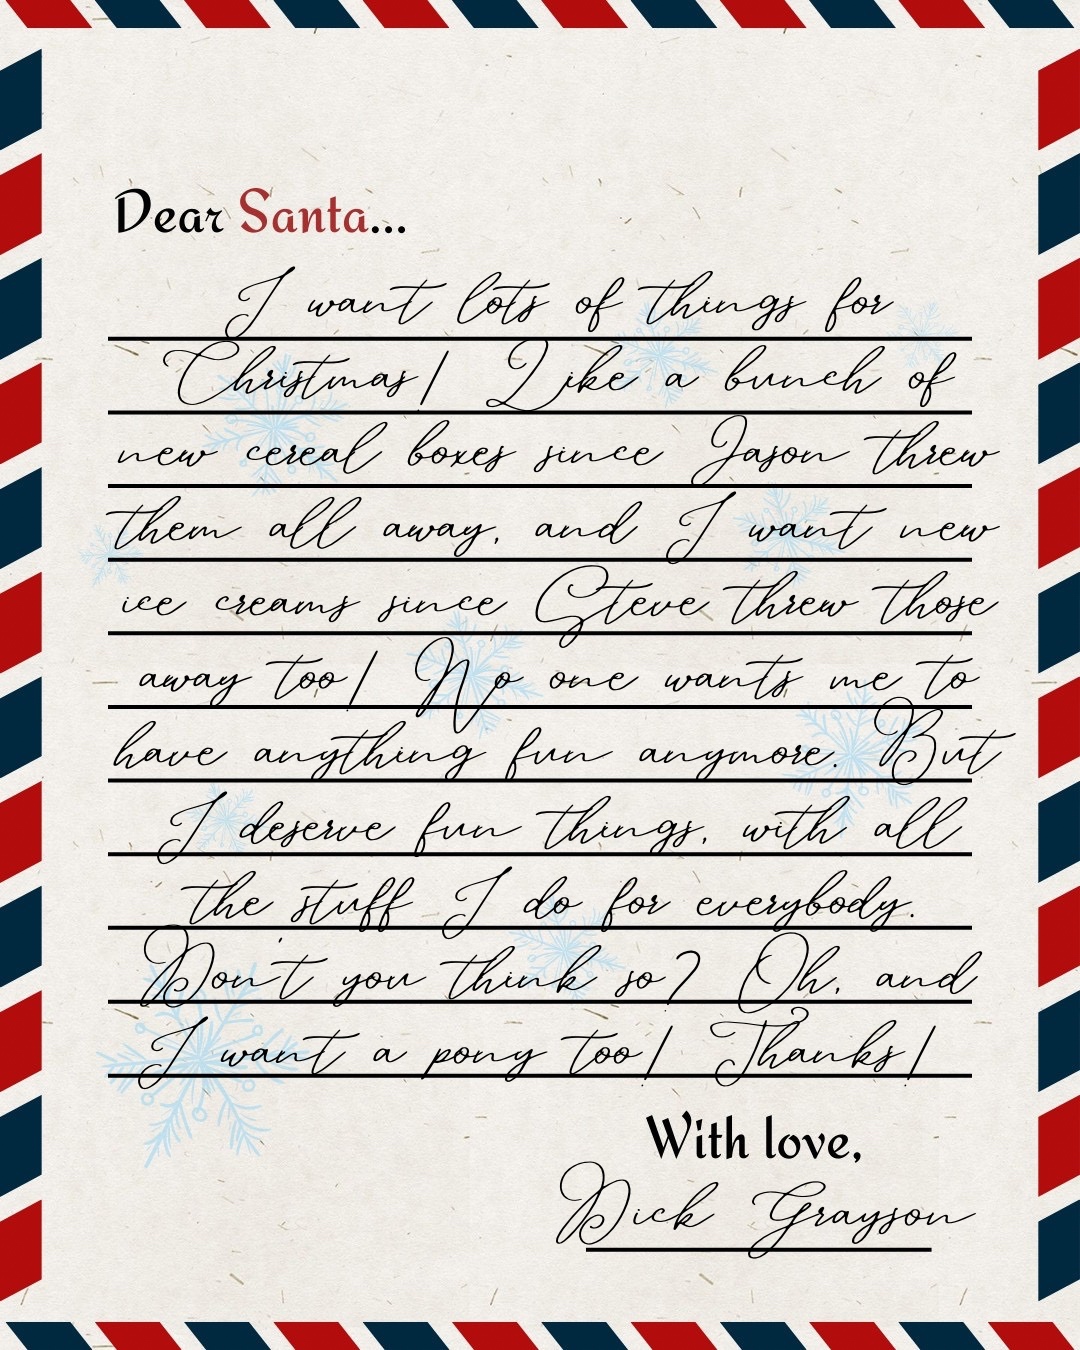 Dear Santa...
I want lots of things for
Christmas! Like a bunch of
new cereal boxes since Jason threw
them all away, and I want new
ice creams since Steve threw those
away too! No one wants me to
have anything fun anymore. But
I deserve fun things, with all
the stuff I do for everybody.
Don't you think so? Oh, and
I want a pony too! Thanks!
With love,
Dick Grayson